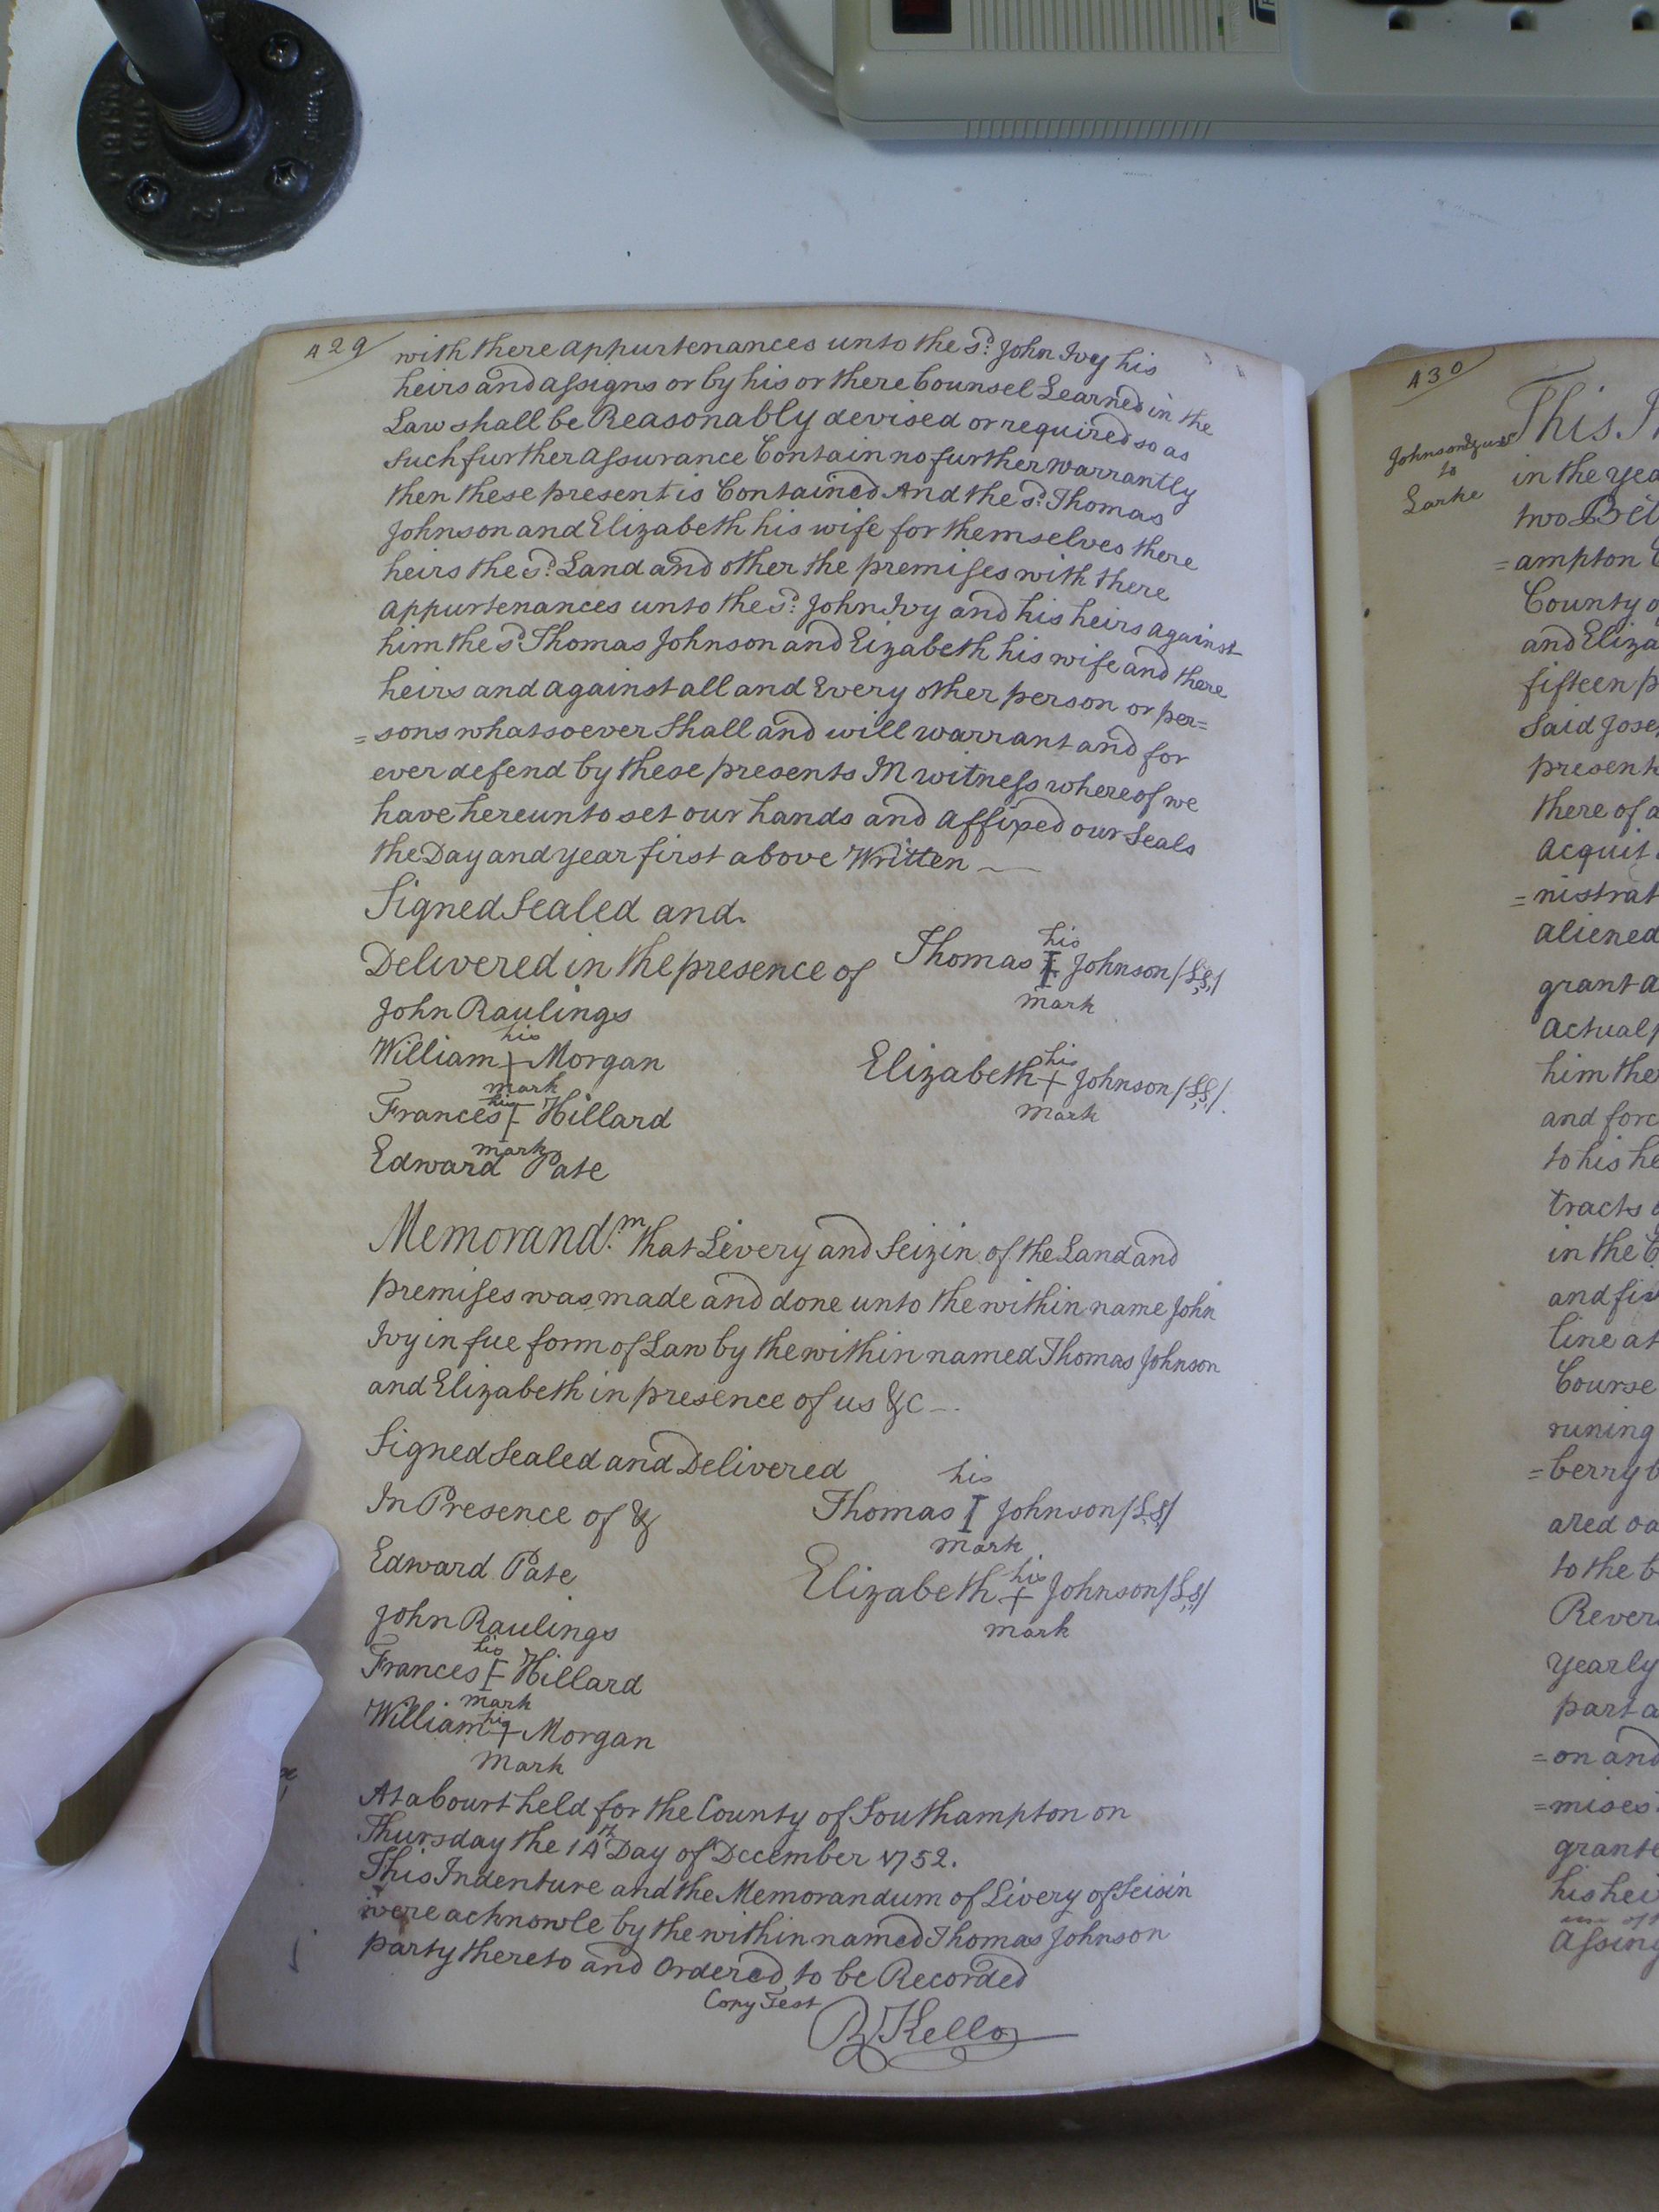 429
with there appurtenances unto the sd. John Ivy his
heirs and assigns or by his or there Counsel Learned in the
Law shall be Reasonably devised or required so as
such further assurance Contain no further warrantly
then these present is Contained And the sd. Thomas
Johnson and Elizabeth his wife for themselves there
heirs the sd. Land and other the premises with there
appurtenances unto the sd. John Ivy and his heirs against
him the sd Thomas Johnson and Eizabeth his wife and there
heirs and against all and Every other person or per=
=sons whatsoever Shall and will warrant and for
ever defend by these presents In witness whereof we
have hereunto set our hands and affixed our Seals
the Day and year first above Written
Signed Sealed and
Delivered in the presence of
his
Thomas I Johnson /LS/
mark
John Raulings
his
William + Morgan
mark
his
Elizabeth + Johnson /LS/
mark
his
Frances F Hillard
mark
Edward Pate
Memorand.m that Livery and Seizin of the Land and
premises was made and done unto the within name John
Ivy in fue form of Law by the within named Thomas Johnson
and Elizabeth in presence of us &c
Signed Sealed and Delivered
In Presence of &
his
Thomas I Johnson /LS/
mark
Edward Pate
his
Elizabeth + Johnson /LS/
mark
John Raulings
his
Frances F Hillard
mark
his
William + Morgan
mark
At a Court held for the County of Southampton on
Thursday the 14th Day of December 1752.
This Indenture and the Memorandum of Livery of Seisin
were acknowle by the within named Thomas Johnson
party thereto and Ordered to be Recorded
Copy Test
R Kello
430
Johnson
to
Larke
This
in the yea
two Bet
=ampton
County o
and Eliza
fifteen p
Said Jose
present
there of a
acquit
=nistrat
aliened
grant a
actual p
him the
and forc
to his he
tracts
in the C
and fi
line at
Course
runing
=berry b
ared oa
to the b
Rever
yearly
part a
=on and
=mises
grante
his hei
Assing